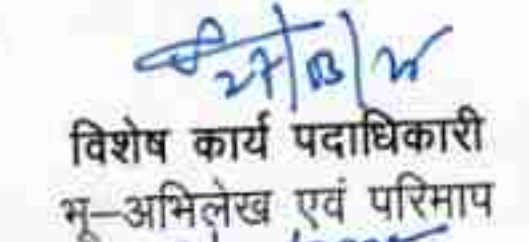 27/03/25
विशेष कार्य पदाधिकारी
भू-अभिलेख एवं परिमाप